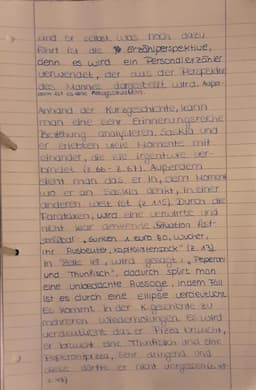 und er selbst was noch dazu
führt ist die Erzählperspektive,
denn es wird ein Personalerzähler
verwendet, der aus der Perspektive
des Mannes dargestellt wird. Außer-
dem ist es eine Alltagssituation.
Anhand der Kurzgeschichte, kann
man eine sehr Erinnerungsreiche
Beziehung analysieren. Saskia und
er erlebten viele Momente mit-
einander, die sie irgentwie ver-
bindet (z. 66- z. 67). Außerdem
sieht man das er in, dem Moment
wo er an Saskia denkt, in einer
anderen Welt ist (z 115). Durch die
Parataxen, wird eine verwirrte und
nicht klar Situation fest-
stellbar „Gurken 1 euro 80, Wucher,
ihr Ausbeuter, Kapitalistenpack" (z. 13).
In Zeile 18, wird gesagt: „Peperoni
und Thunfisch", dadurch spürt man
eine unbedachte Aussage, indem Fall
ist es durch eine Ellipse verdeutlicht.
Es kommt in der K.geschichte zu
mehreren Wiederholungen. Es wird
verdeutlicht das er Pizza braucht,
er braucht eine Thunfisch und eine
Peperonipizza, sehr dringend und
diese dürfte er nicht vergessen